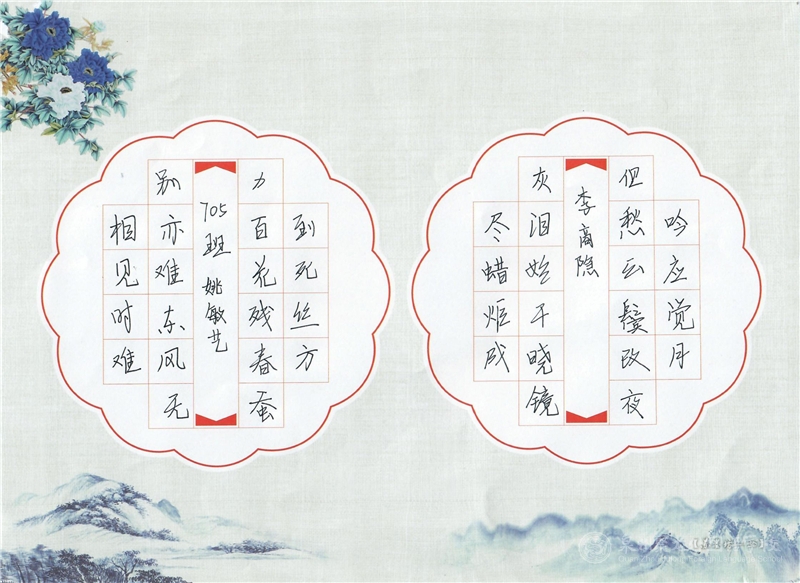 相见时难
别亦难东风无
705班 姚敏艺
力百花残春蚕
到死丝方
尽蜡炬成
灰泪始干晓镜
李商隐
但愁云鬓改夜
吟应觉月